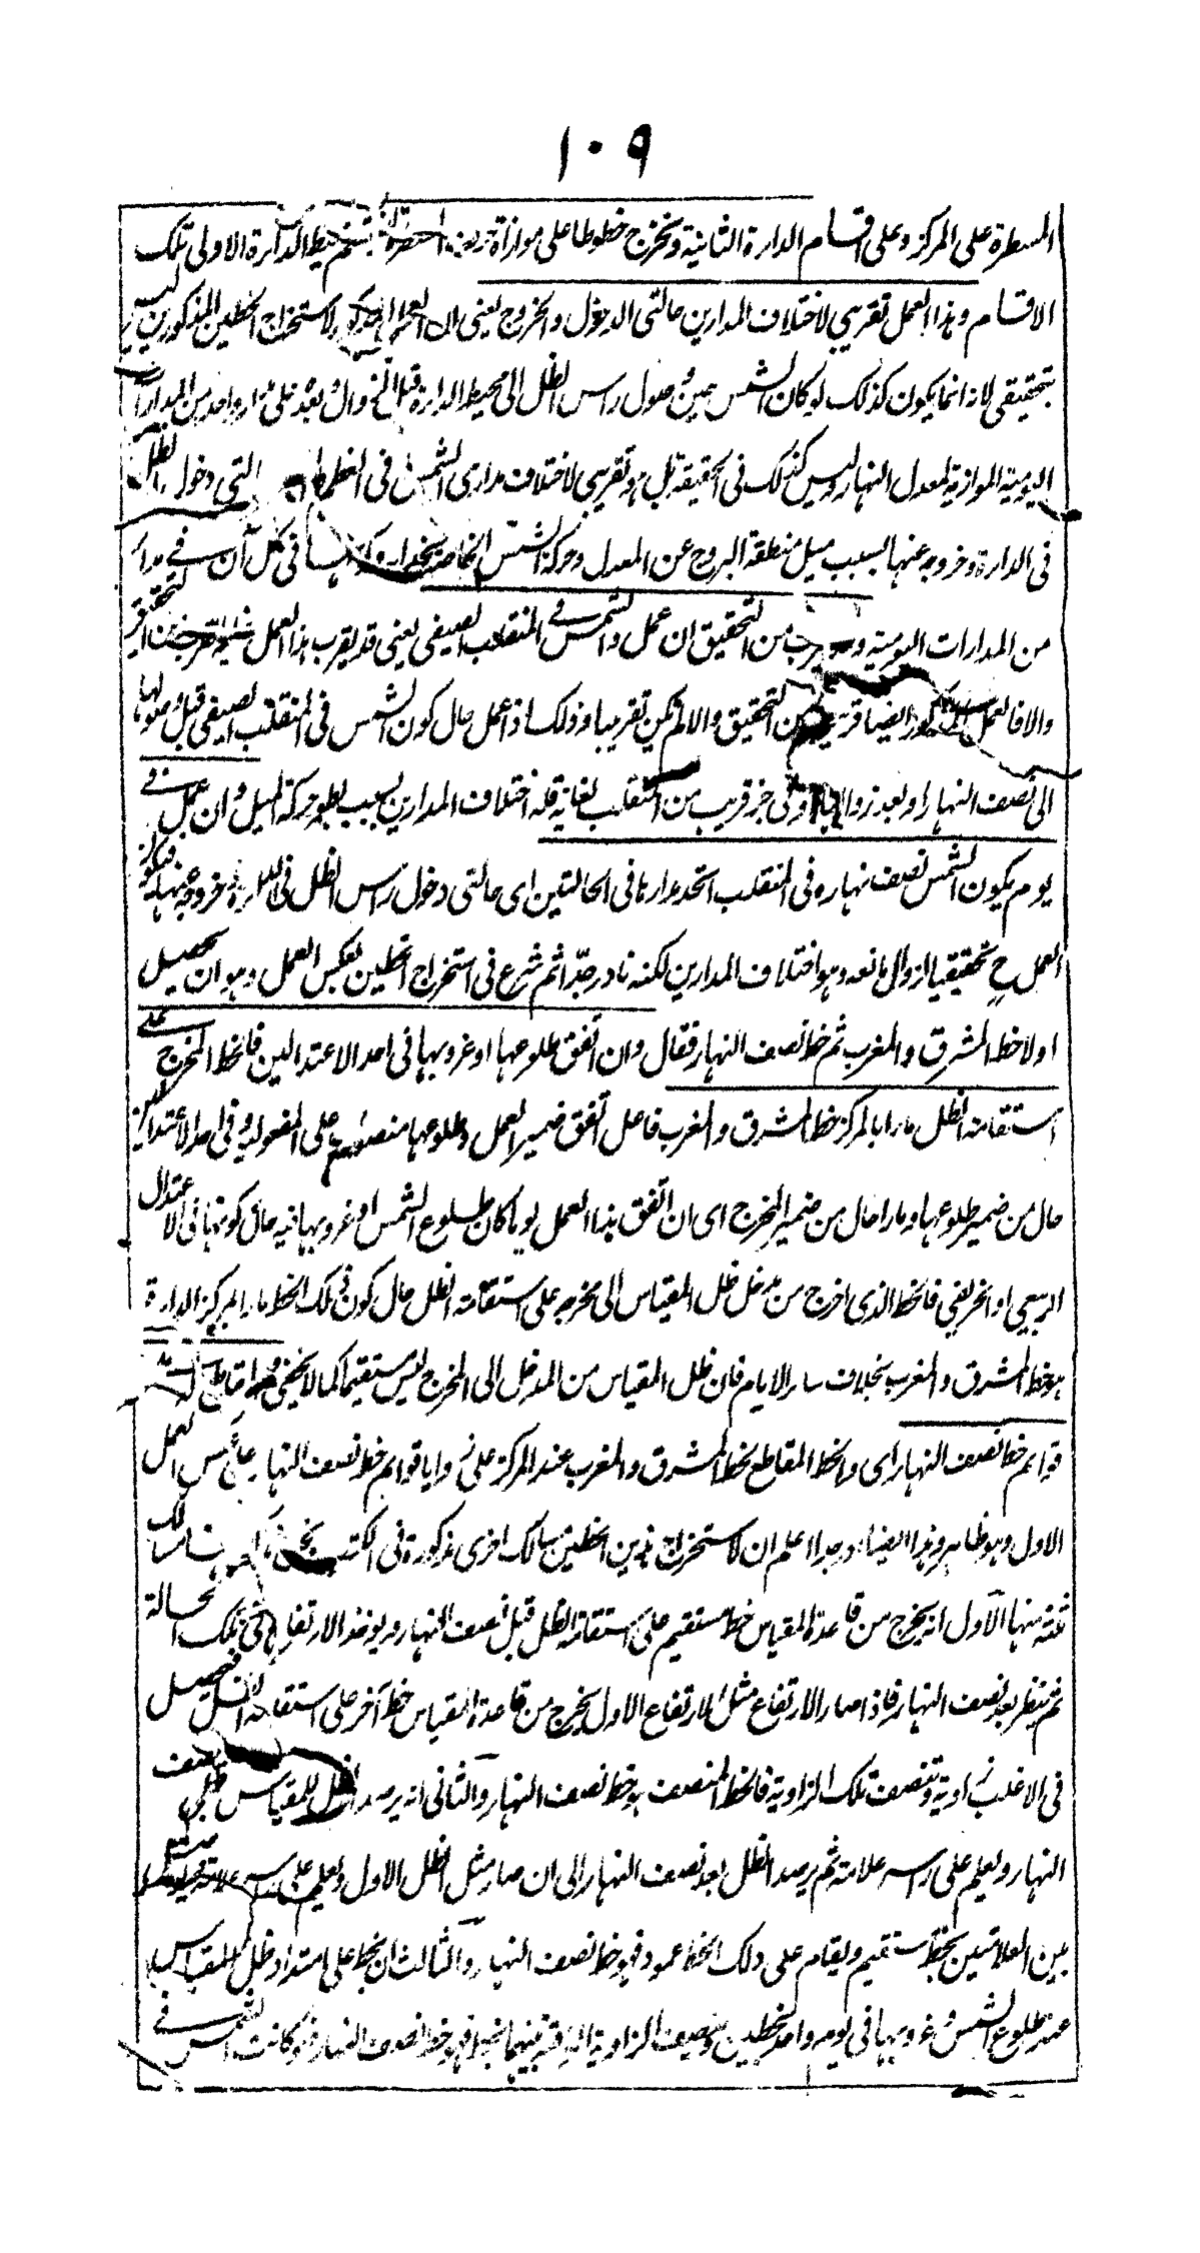 ١٠٩
المسطرة على المركز وعلى اقسام الدائرة الثانية ونخرج خطوطا على موازاة محيط الدائرة الاولى تلك
الاقسام وهذا العمل تقريبي لاختلاف المدارين حالتى الدخول والخروج يعنى ان العمل المذكور لاستخراج الخطين المذكورين ليس
بتحقيقى لانه انما يكون كذلك لو كان الشمس حين وصول راس الظل الى محيط الدائرة قبل الزوال وبعده على مدار واحد من المدارات
اليومية الموازية لمعدل النهار وليس كذلك فى الحقيقة بل هو تقريبى لاختلاف مدارى الشمس فى التى دخول الظل
فى الدائرة وخروجه عنها بسبب ميل منطقة البروج عن المعدل وحركة الشمس الخاصة فى كل آن فى مدار
من المدارات اليومية من التحقيق ان عمل والشمس فى المنقلب الصيفى يعنى قد يقرب هذا العمل من التحقيق
والا فالعمل المذكور ايضا قريب من التحقيق والا لم يكن تقريبيا وذلك اذا عمل حال كون الشمس فى المنقلب الصيفى قبل وصولها
الى نصف النهار او بعد زوالها او فى جزء قريب من المنقلب لغاية قلة اختلاف المدارين بسبب بطوء حركة الميل وان عمل فى
يوم يكون الشمس نصف نهاره فى المنقلب اتحد مدارها فى الحالتين اى حالتى دخول راس الظل فى الدائرة وخروجه عنها فيكون
العمل ح تحقيقيا لزوال مانعه وهو اختلاف المدارين لكنه نادر جدا ثم شرع فى استخراج الخطين بعكس العمل وهو ان يحصل
اولا خط المشرق والمغرب ثم خط نصف النهار فقال وان اتفق طلوعها او غروبها فى احد الاعتدالين فالخط المخرج على
استقامة الظل مارا بالمركز خط المشرق والمغرب فاعل اتفق ضمير العمل وطلوعها منصوب على المفعولية وفى احد الاعتدالين
حال من ضمير طلوعها ومارا حال من ضمير المخرج اى ان اتفق هذا العمل يوما كان طلوع الشمس او غروبها فيه حال كونها فى الاعتدال
الربيعى او الخريفى فالخط الذى اخرج من مدخل ظل المقياس الى مخرجه على استقامة الظل حال كون ذلك الخط مارا بمركز الدائرة
هو خط المشرق والمغرب بخلاف سائر الايام فان ظل المقياس من المدخل الى المخرج ليس مستقيما كما لا يخفى والمقاطع له على
قوائم خط نصف النهار اى والخط المقاطع لخط المشرق والمغرب عند المركز على زوايا قوائم خط نصف النهار على عكس العمل
الاول وهو ظاهر وهذا ايضا نادر جدا اعلم ان لاستخراج هذين الخطين مسالك اخرى مذكورة فى الكتب نحن نذكر ههنا مسالك
ثلثة منها الاول انه يخرج من قاعدة المقياس خط مستقيم على استقامة الظل قبل نصف النهار ويؤخذ الارتفاع فى تلك الحالة
ثم ينظر بعد نصف النهار فاذا صار الارتفاع مثل الارتفاع الاول يخرج من قاعدة المقياس خط آخر على استقامة الظل فيحصل
فى الاغلب زاوية وتنصف تلك الزاوية فالخط المنصف هو خط نصف النهار والثانى انه يرصد الظل للمقياس قبل نصف
النهار ويعلم على راسه علامة ثم يرصد الظل بعد نصف النهار الى ان صار مثل الظل الاول ويعلم على راسه علامة ويوصل
بين العلامتين بخط مستقيم ويقام على ذلك الخط عمود فهو خط نصف النهار والثالث ان يخط على امتداد ظل المقياس
عند طلوع الشمس وغروبها فى يوم واحد خطين وينصف الزاوية الواقعة بينهما بخط فهو خط نصف النهار فلو كانت الشمس فى